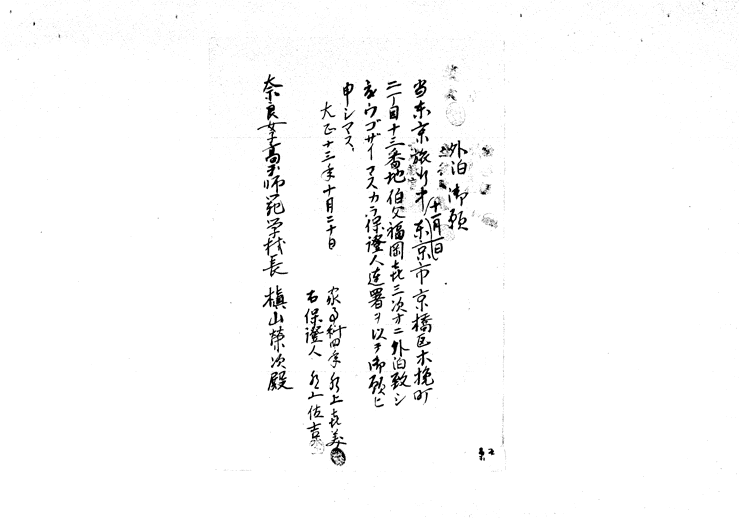 外泊御願
十一月一日
当東京旅行中東京市京橋区木挽町
二丁目十三番地伯父福岡喜三次方ニ外泊致シ
度ウゴザイマスカラ保證人連署ヲ以テ御願ヒ
申シマス、
大正十三年十月二十日
家事科四年 水上喜美
右保證人 水上佐吉
奈良女子高等師範学校長 槇山榮次殿